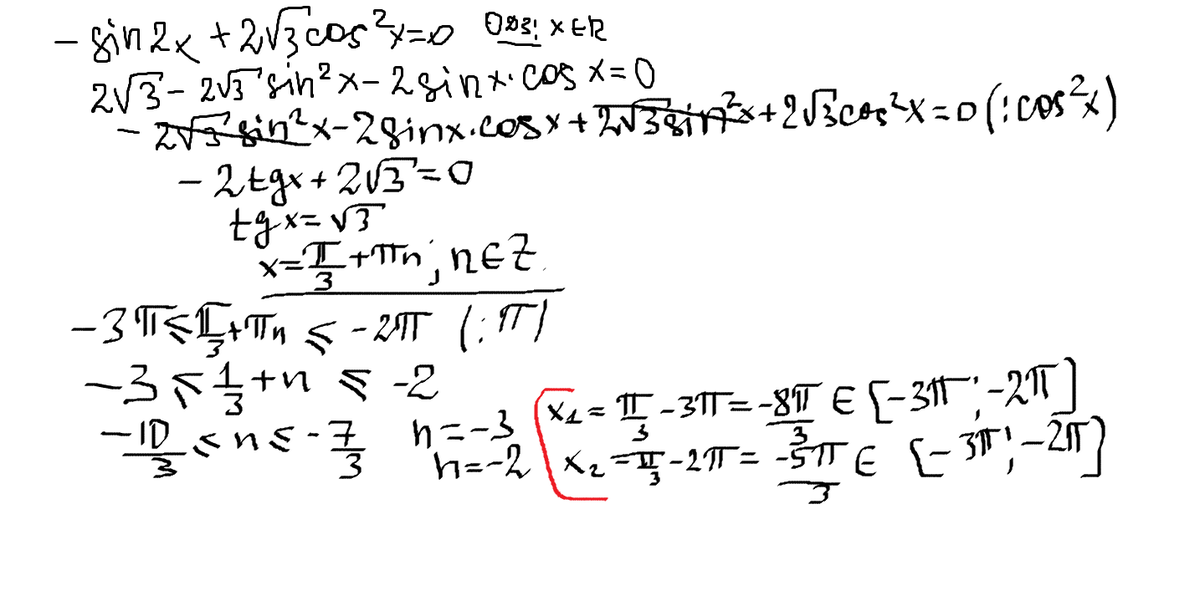 - sin2x + 2√3cos²x=0 ОДЗ: x∈R
2√3 - 2√3 sin²x - 2sinx·cos x=0
- 2√3 sin²x - 2sinx·cosx + 2√3sin²x + 2√3cos²x = 0 (:cos²x)
- 2tgx + 2√3 = 0
tgx = √3
x = π/3 + πn; n∈Z.
-3π ≤ π/3 + πn ≤ -2π (:π)
-3 ≤ 1/3 + n ≤ -2
-10/3 ≤ n ≤ -7/3 n=-3 x₁ = π/3 - 3π = -8π/3 ∈ [-3π; -2π]
n=-2 x₂ = π/3 - 2π = -5π/3 ∈ [-3π; -2π]